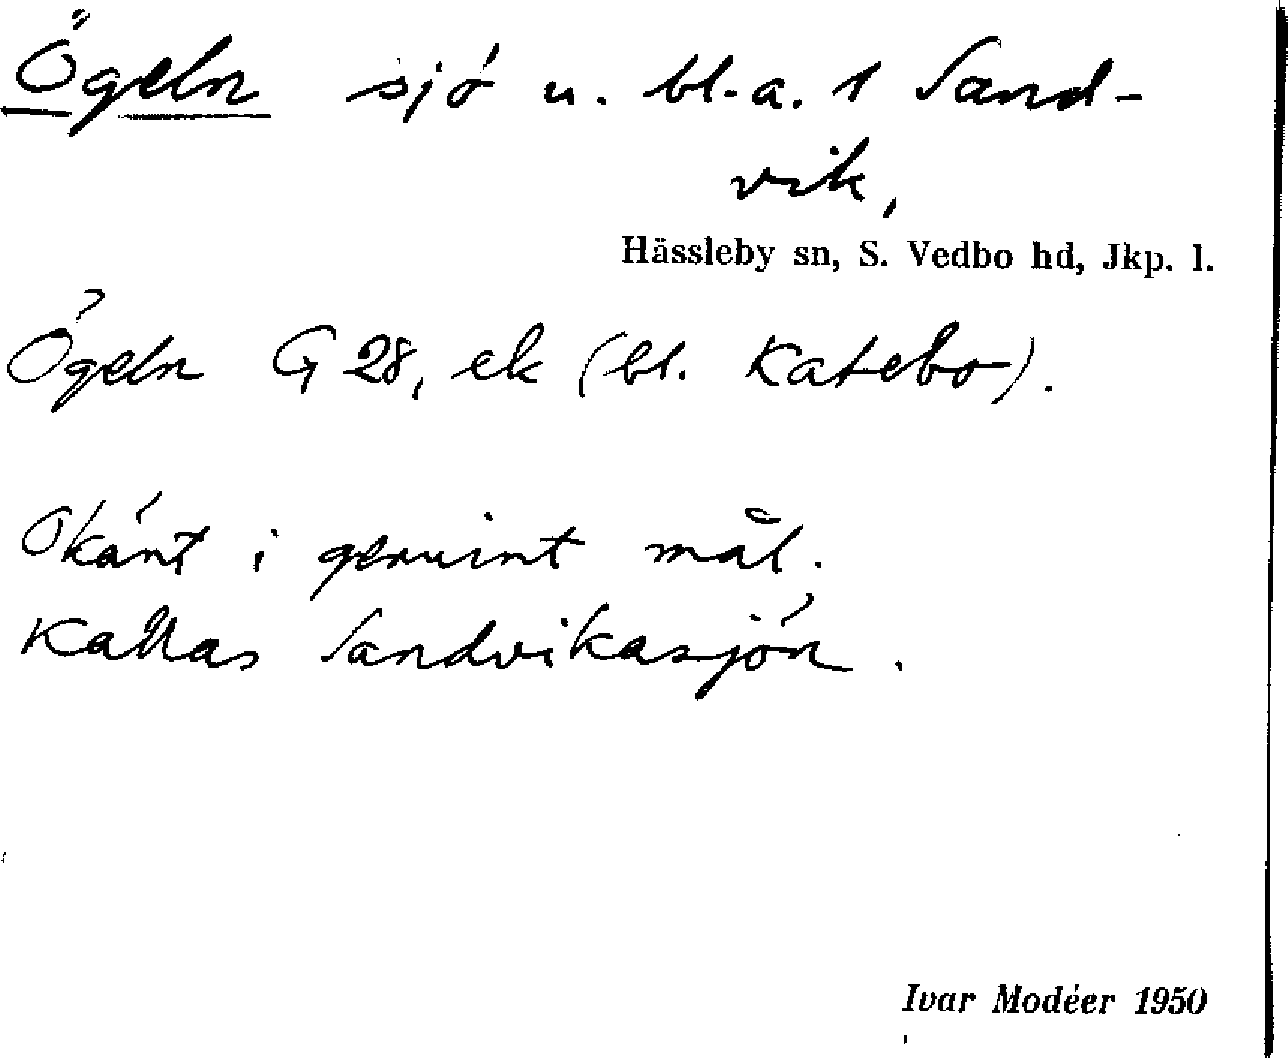 Ögeln sjö u. bl.a. 1 Sand-
vik,
Hässleby sn, S. Vedbo hd, Jkp. l.
Ögeln G 28, ek (bl. Katebo).
Okänt i genuint mål.
Kallas Sandvikasjön.
Ivar Modéer 1950